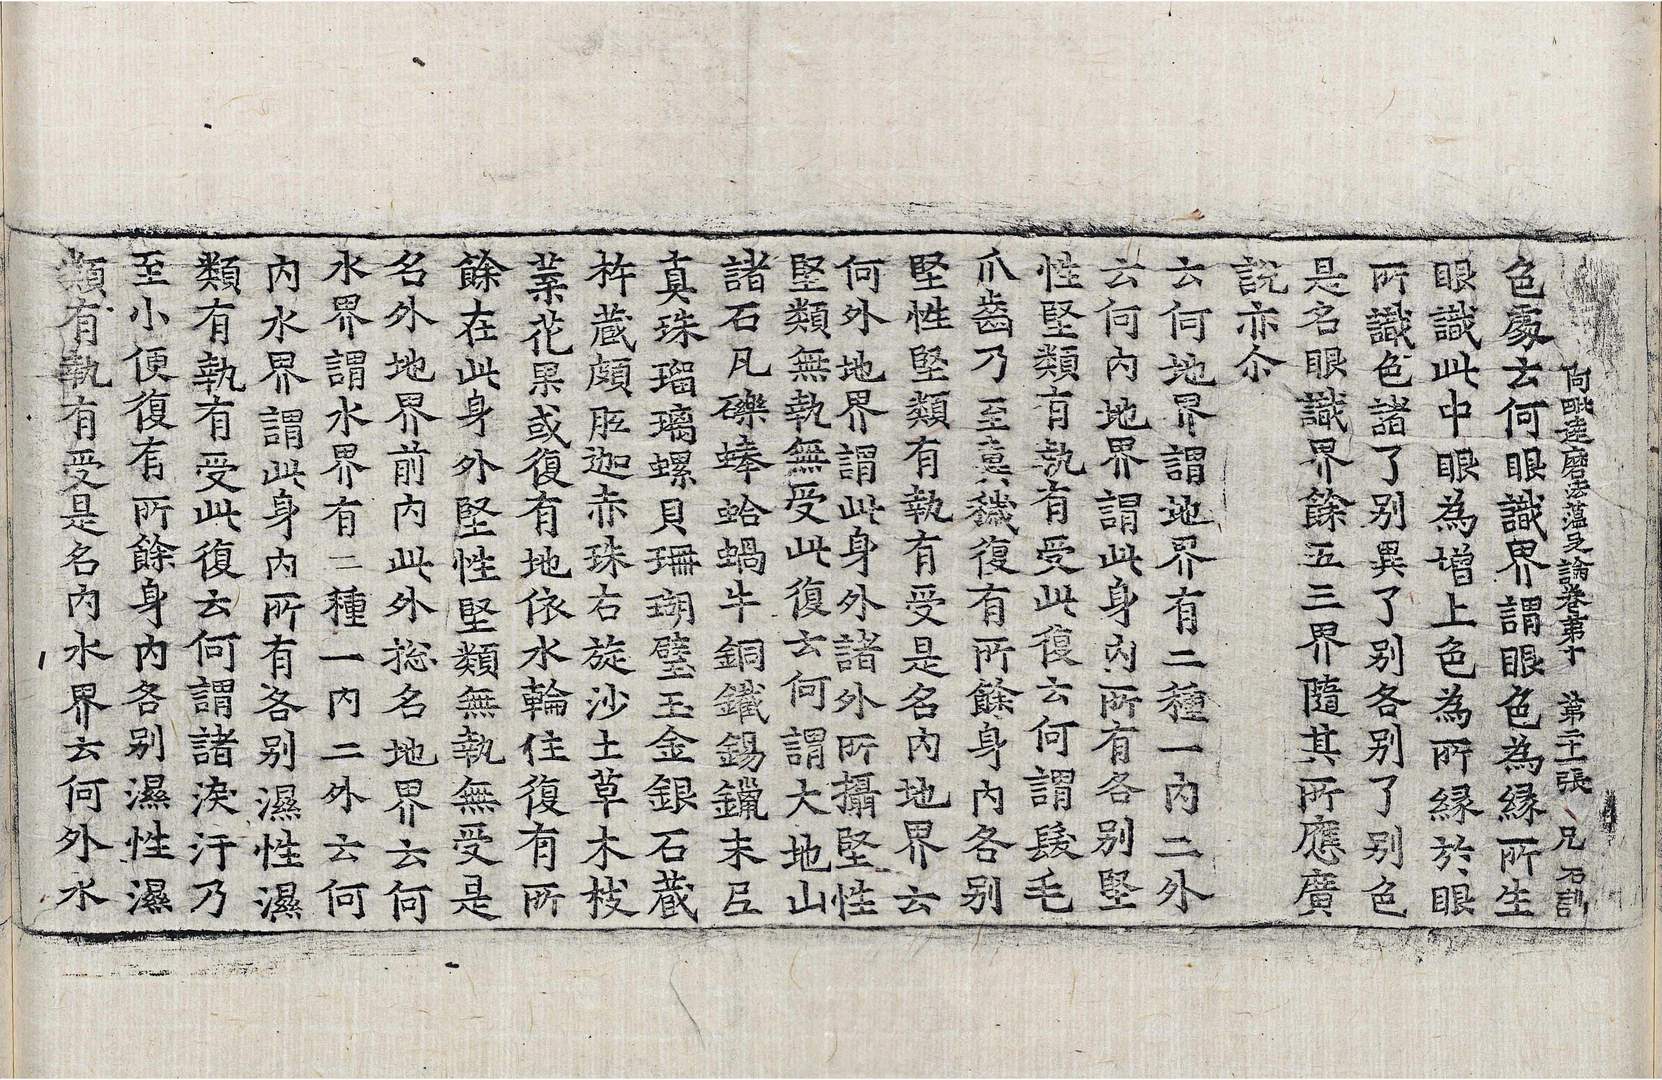 阿毗達磨法蘊足論卷第十　第二十二張　兄　石訓
色處云何眼識界謂眼色為縁所生
眼識此中眼為增上色為所縁於眼
所識色諸了别異了别各别了别色
是名眼識界餘五三界隨其所應廣
說亦尒
云何地界謂地界有二種一内二外
云何内地界謂此身内所有各别堅
性堅類有執有受此復云何謂髮毛
爪齒乃至糞穢復有所餘身内各别
堅性堅類有執有受是名内地界云
何外地界謂此身外諸外所攝堅性
堅類無執無受此復云何謂大地山
諸石凡礫蜯蛤蝸牛銅鐵錫鑞末尼
真珠瑠璃螺貝珊瑚璧玉金銀石蔵
杵蔵頗胝迦赤珠右旋沙土草木枝
葉花果或復有地依水輪住復有所
餘在此身外堅性堅類無執無受是
名外地界前内此外捴名地界云何
水界謂水界有二種一内二外云何
内水界謂此身内所有各别濕性濕
類有執有受此復云何謂諸淚汗乃
至小便復有所餘身内各别濕性濕
類有執有受是名内水界云何外水